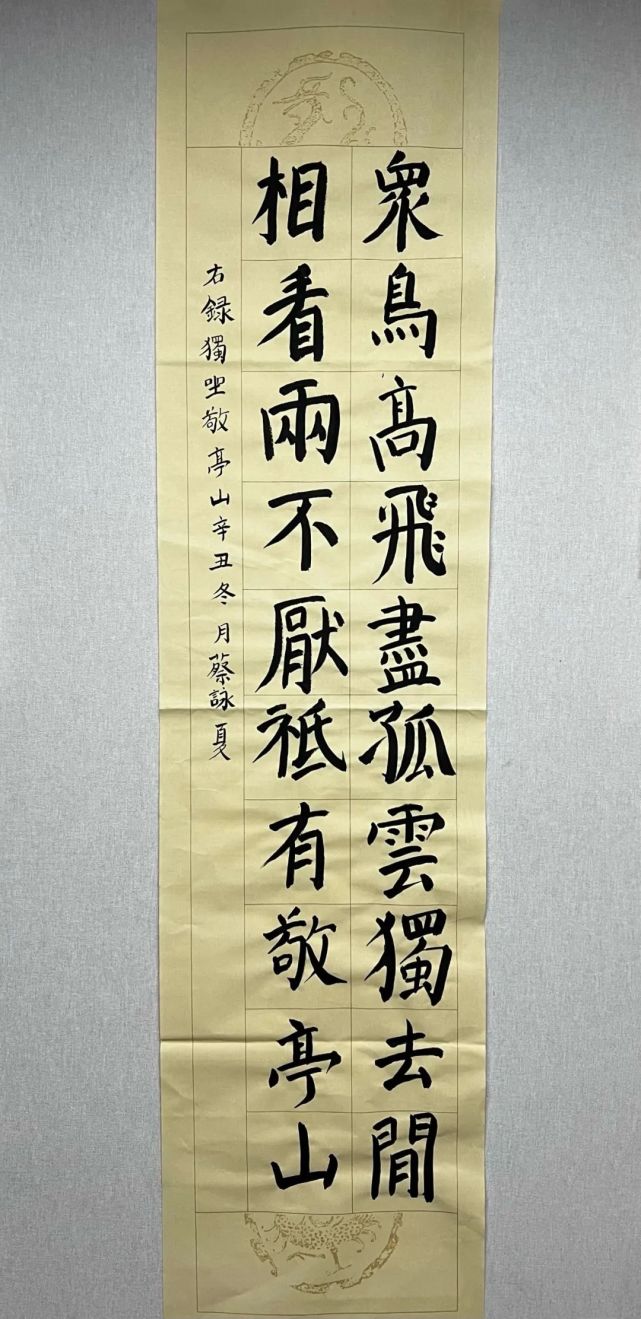 眾鳥高飛盡孤雲獨去閒
相看兩不厭祗有敬亭山
右録獨坐敬亭山辛丑冬月蔡詠夏